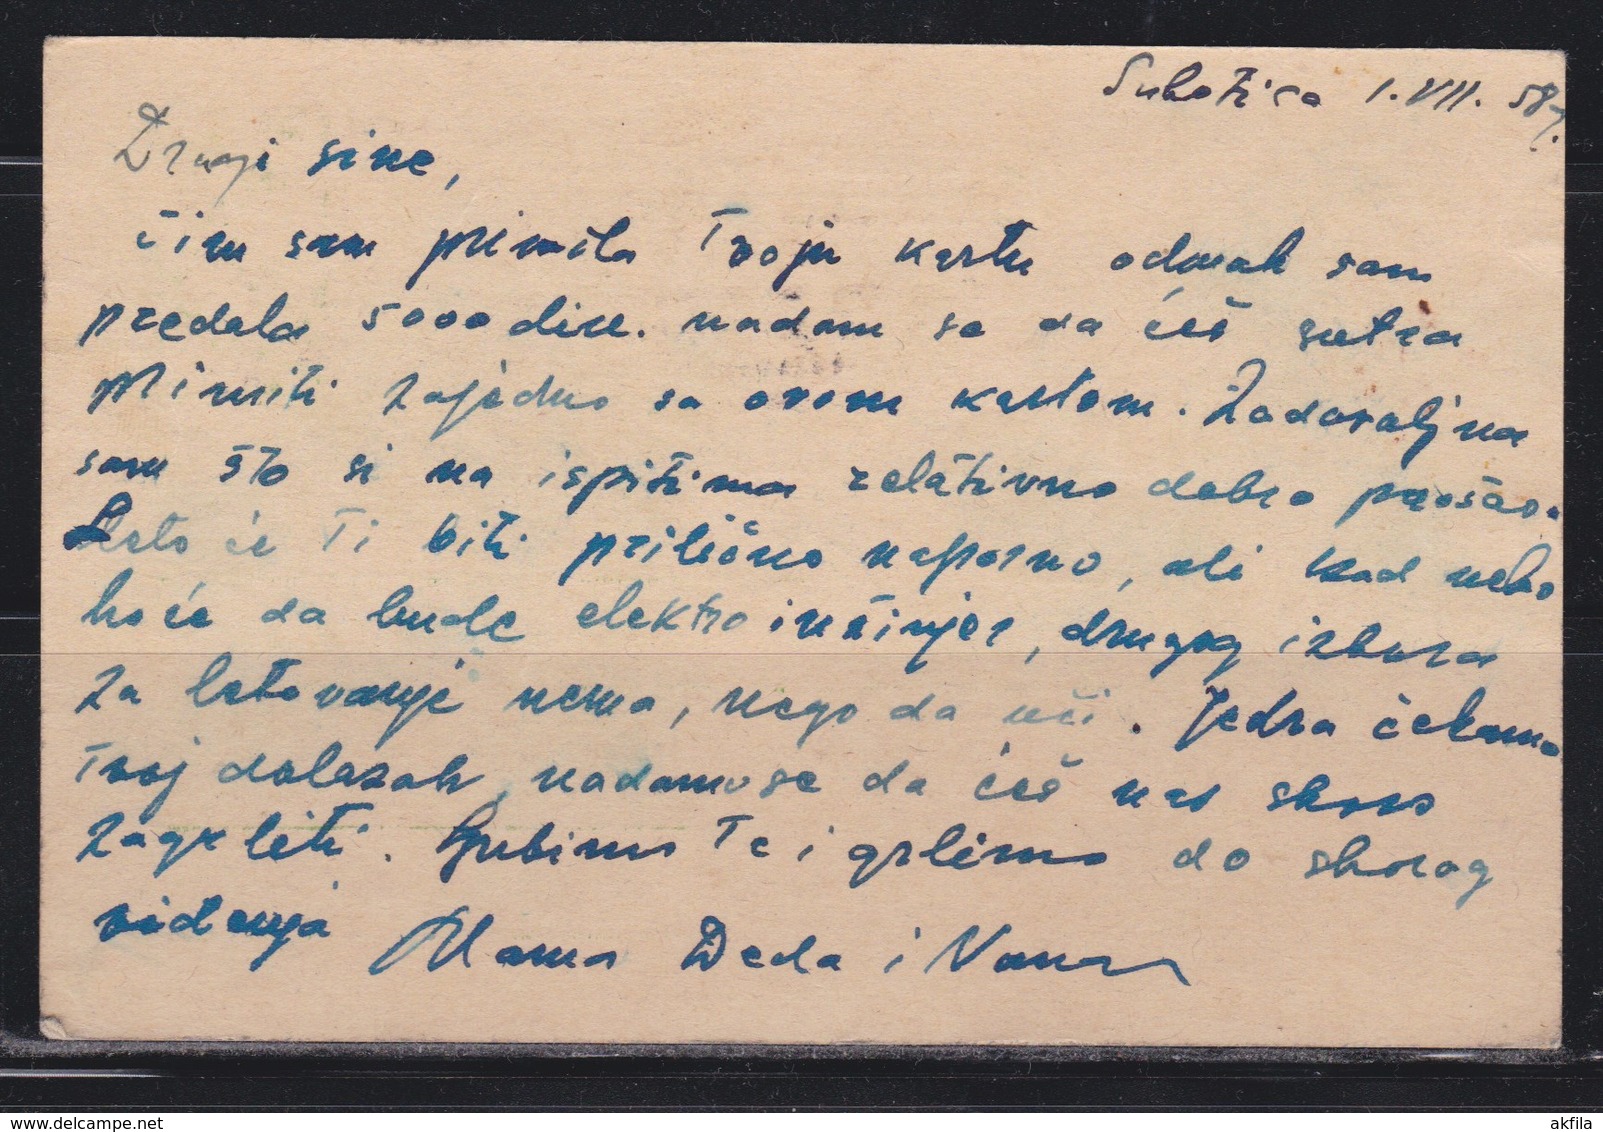 Subotica 1. VII. 58.
Dragi sine,
čim sam primila Tvoju kartu odmah sam
predala 5000 din. nadam se da ćeš sutra
primiti zajedno sa ovom kartom. Zadovoljna
sam što si na ispitima relativno dobro prošao.
Leto će Ti biti prilično naporno, ali kad neko
hoće da bude elektro inžinjer, drugog izbora
za letovanje nema, nego da uči. Jedva čekamo
Tvoj dolazak, nadamo se da ćeš nas skoro
zagrliti. Ljubimo Te i grlimo do skorog
viđenja Mama Deda i Nana
www.delcampe.net
akfila